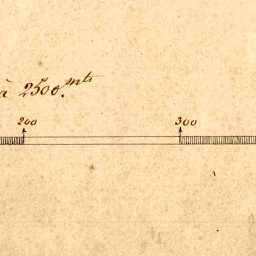 à 2500.mts
200 300